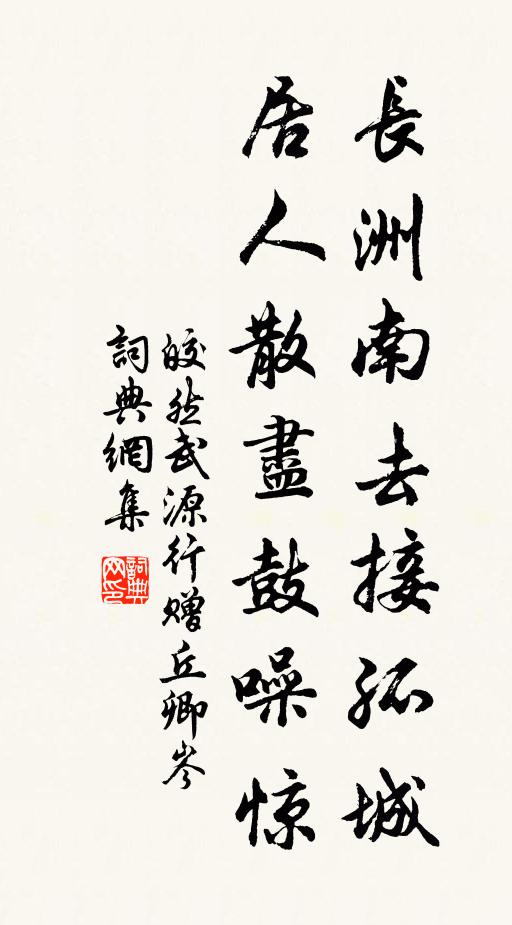 長洲南去接孤城
居人散盡鼓噪惊
皎然武源行赠丘卿岑
詞典網集
詞典网印